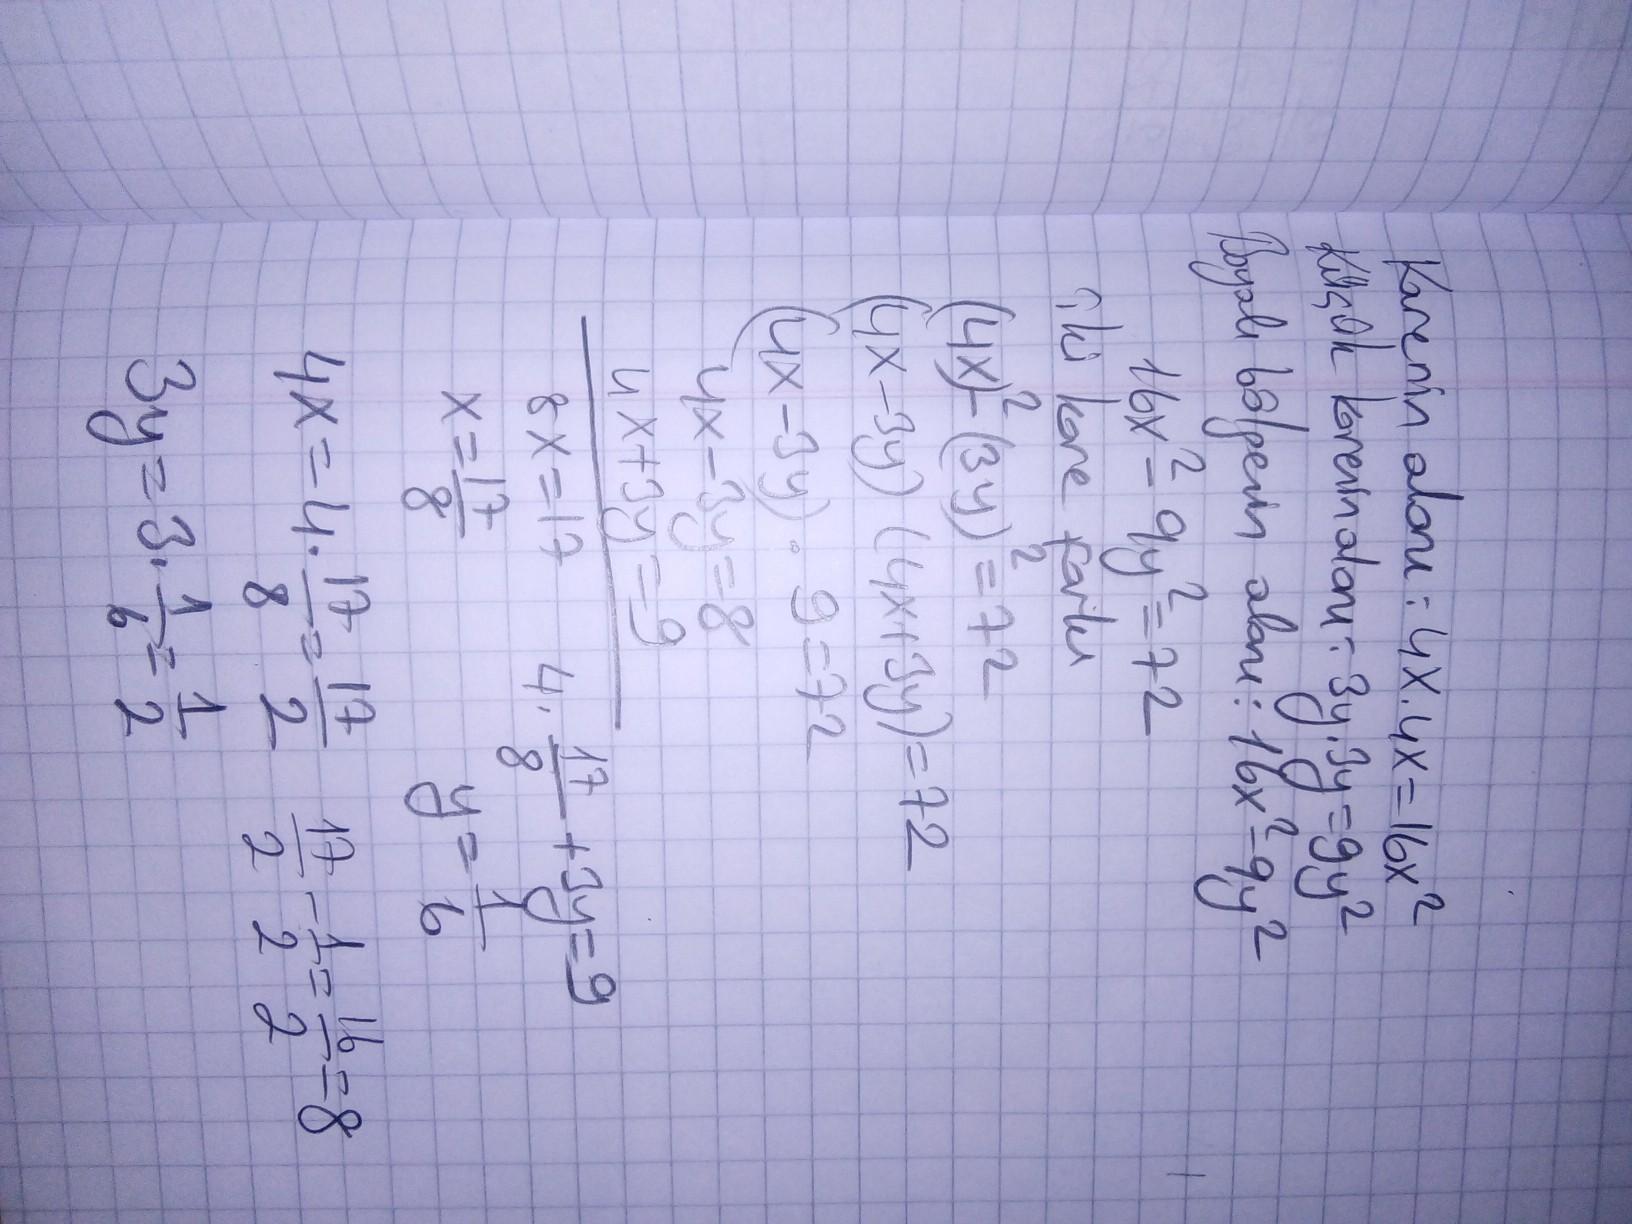 Karenin alanı : 4x.4x=16x²
Küçük karenin alanı : 3y.3y=9y²
Boyalı bölgenin alanı : 16x²-9y²
16x²-9y²=72
İki kare farkı
(4x)²-(3y)²=72
(4x-3y) (4x+3y)=72
(4x-3y) . 9=72
4x-3y=8
4x+3y=9
8x=17 4.17/8+3y=9
x=17/8 y=1/6
4x=4.17/8=17/2 17/2-1/2=16/2=8
3y=3.1/6=1/2